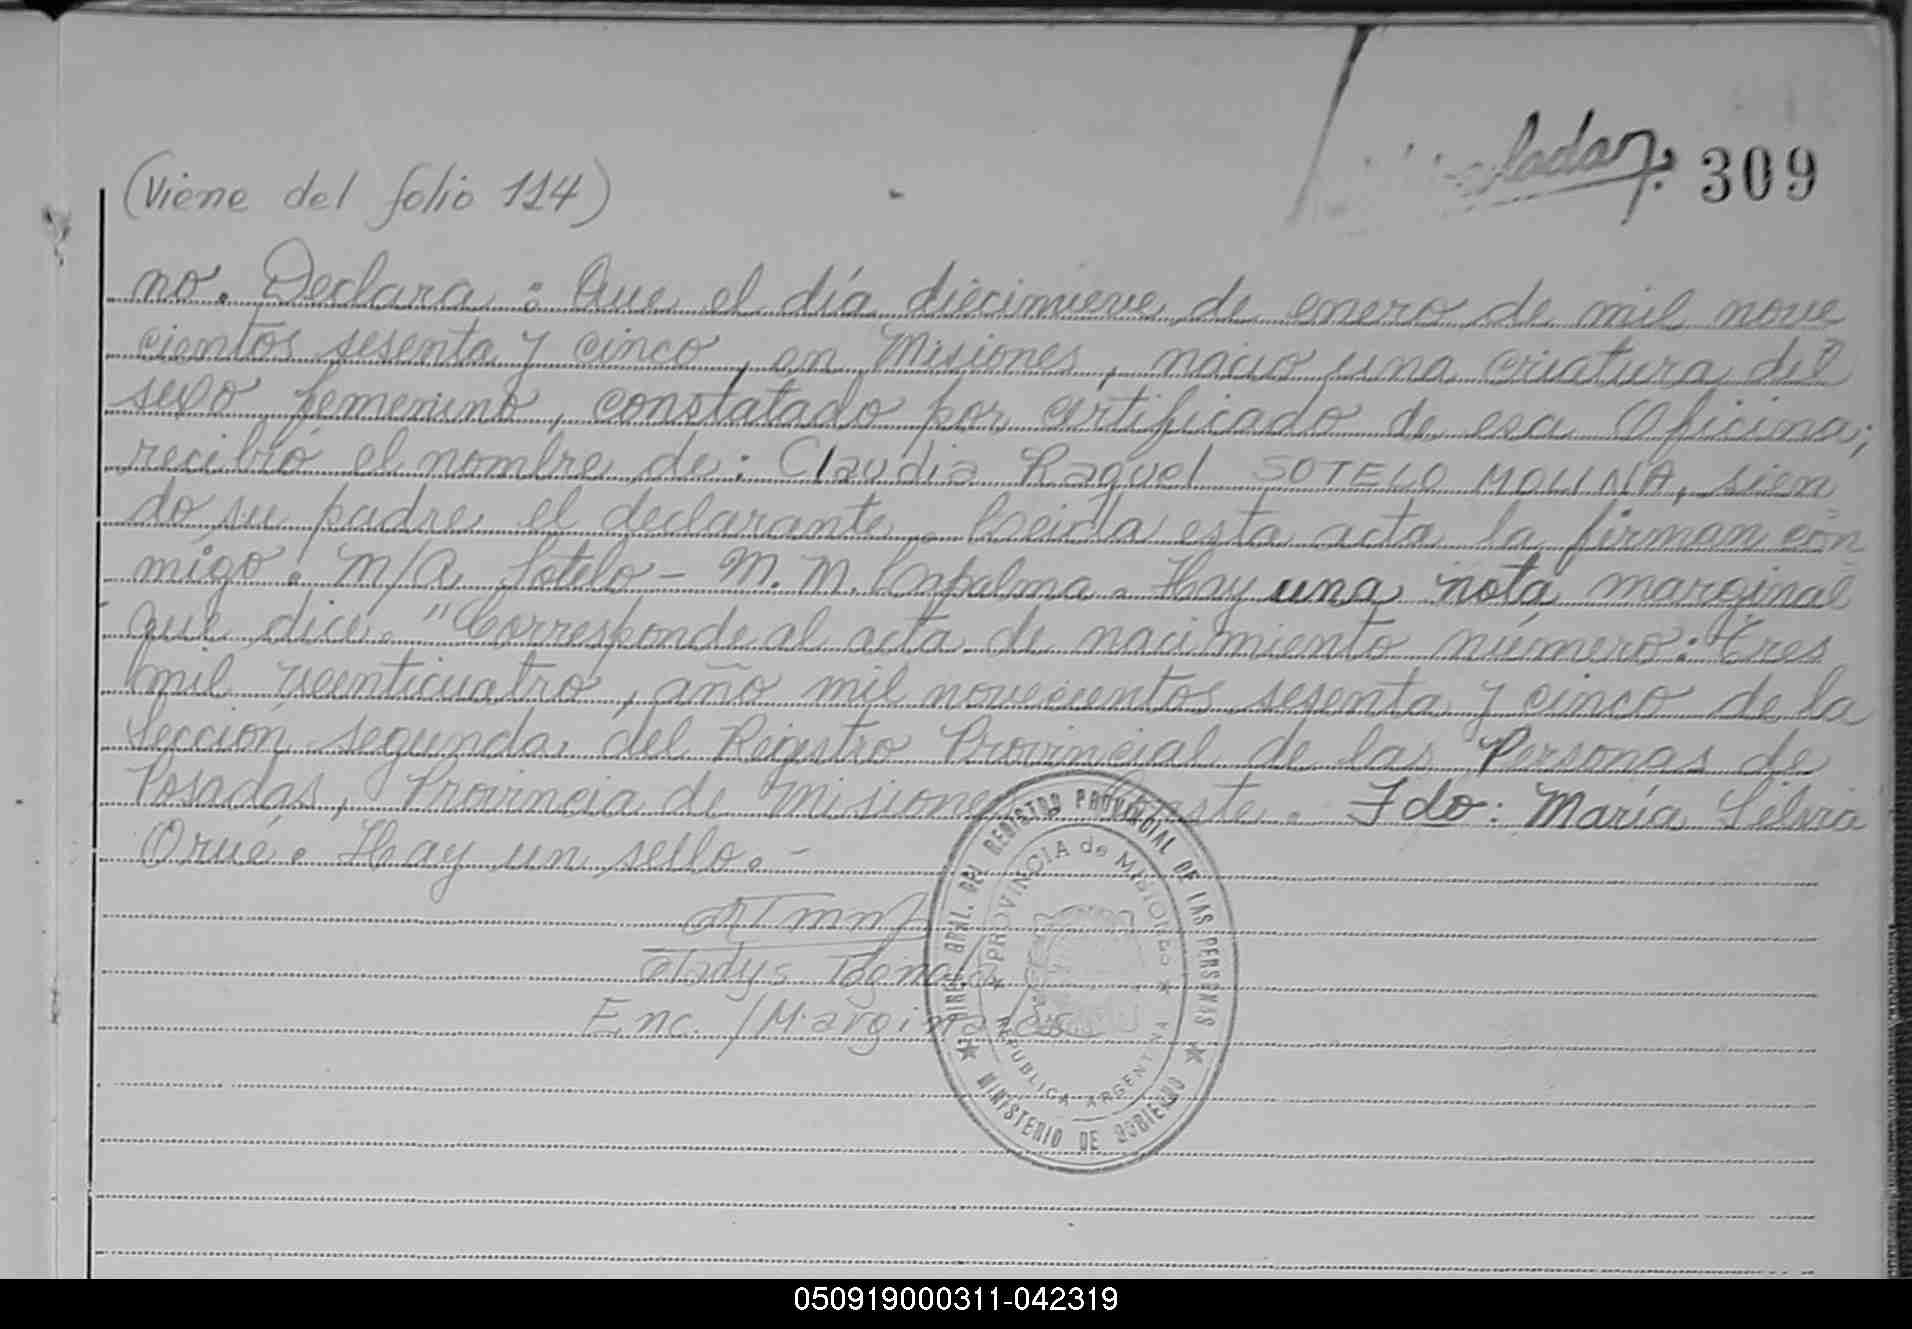 309
(Viene del folio 114)
no. Declara: Que el día diecinueve de enero de mil nove
cientos sesenta y cinco, en Misiones, nació una criatura del
sexo femenino, constatado por certificado de esa Oficina;
recibió el nombre de: Claudia Raquel SOTELO MOLINA, sien
do su padre el declarante. Leida esta acta la firman con
migo. M/A Sotelo - M. M. Hay una nota marginal
que dice. "Corresponde al acta de nacimiento número: Tres
mil veinticuatro, año mil novecientos sesenta y cinco de la
Sección segunda del Registro Provincial de las Personas de
Posadas, Provincia de Misiones. Conste. Fdo: María Silvia
Orué. Hay un sello. -
Gladys
Enc. /Marginales
DIREC. GRAL. DEL REGISTRO PROVINCIAL DE LAS PERSONAS
PROVINCIA de MISIONES
REPUBLICA ARGENTINA
MINISTERIO DE GOBIERNO
050919000311-042319